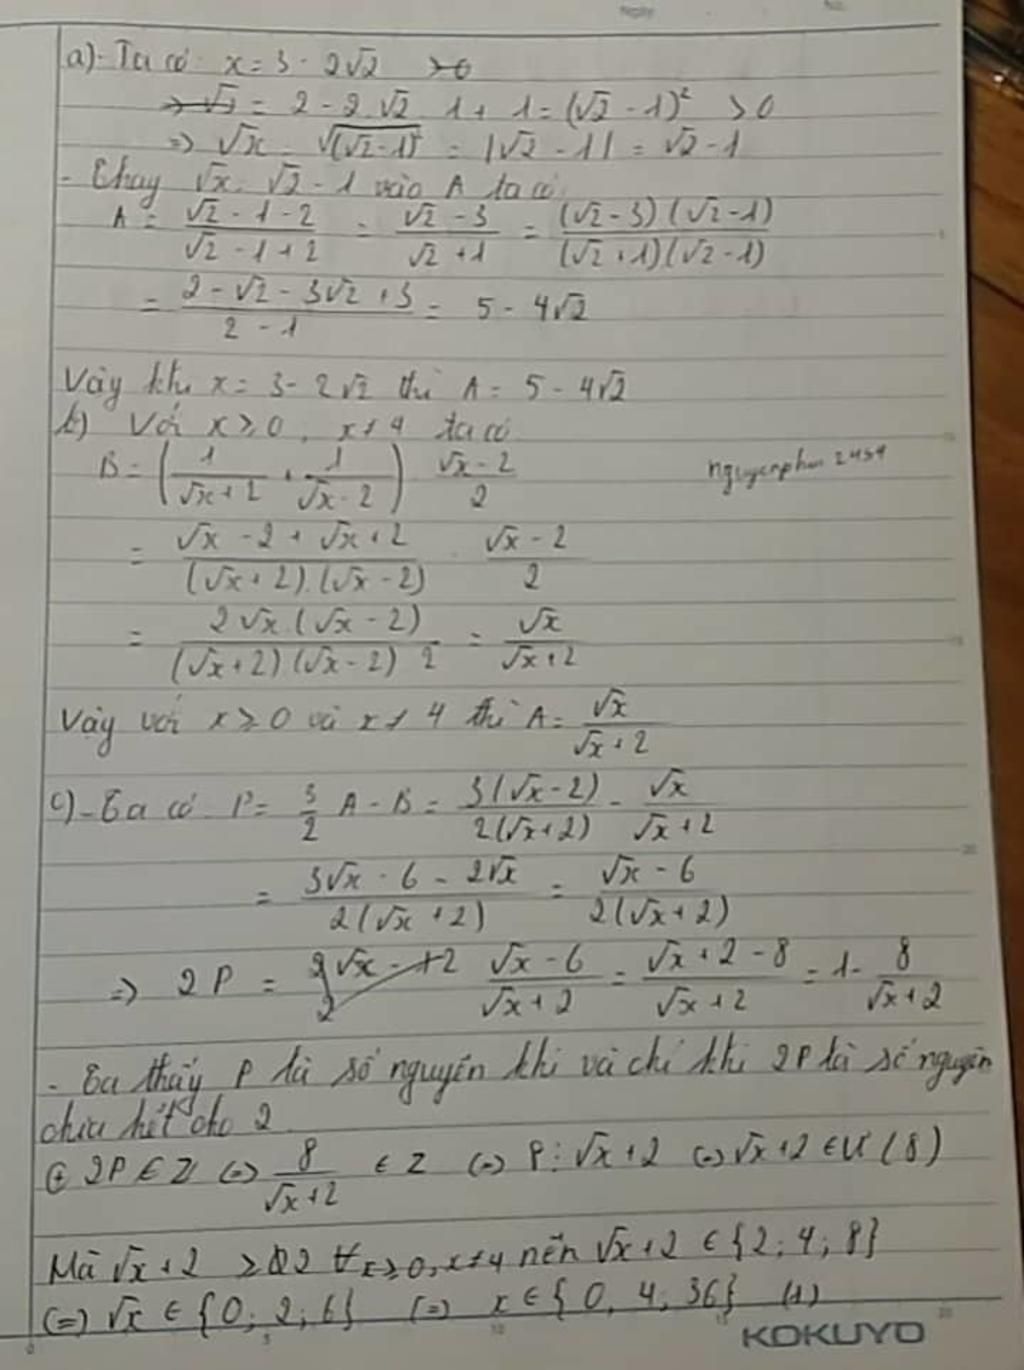 a) - Ta có x = 3 - 2√2 >0
=> √x = 2 - 2.√2.1 + 1 = (√2 - 1)² > 0
=> √x = √(√2-1)² = |√2 - 1| = √2 - 1
- Thay √x = √2 - 1 vào A ta có:
A = (√2 - 1 - 2)/(√2 - 1 + 2) = (√2 - 3)/(√2 + 1) = ((√2 - 3)(√2 - 1))/((√2 + 1)(√2 - 1))
= (2 - √2 - 3√2 + 3)/(2 - 1) = 5 - 4√2
Vậy khi x = 3 - 2√2 thì A = 5 - 4√2
b) Với x ≥ 0, x ≠ 4 ta có
B = (1/(√x + 2) + 1/(√x - 2)) . (√x - 2)/2
nguyenphu 2454
= (√x - 2 + √x + 2)/((√x + 2).(√x - 2)) . (√x - 2)/2
= (2√x.(√x - 2))/((√x + 2).(√x - 2) 2) = √x/(√x + 2)
Vậy với x ≥ 0 và x ≠ 4 thì A = √x/(√x + 2)
c) - Ta có P = 3/2 A - B = (3(√x - 2))/(2(√x + 2)) - √x/(√x + 2)
= (3√x - 6 - 2√x)/(2(√x + 2)) = (√x - 6)/(2(√x + 2))
=> 2P = (√x - 6)/(√x + 2) = (√x + 2 - 8)/(√x + 2) = 1 - 8/(√x + 2)
- Ta thấy P là số nguyên khi và chỉ khi 2P là số nguyên
chia hết cho 2
+ 2P ∈ Z <=> 8/(√x + 2) ∈ Z <=> 8 ⋮ √x + 2 <=> √x + 2 ∈ Ư(8)
Mà √x + 2 ≥ 2 ∀ x ≥ 0, x ≠ 4 nên √x + 2 ∈ {2; 4; 8}
<=> √x ∈ {0; 2; 6} <=> x ∈ {0, 4, 36} (1)
KOKUYO